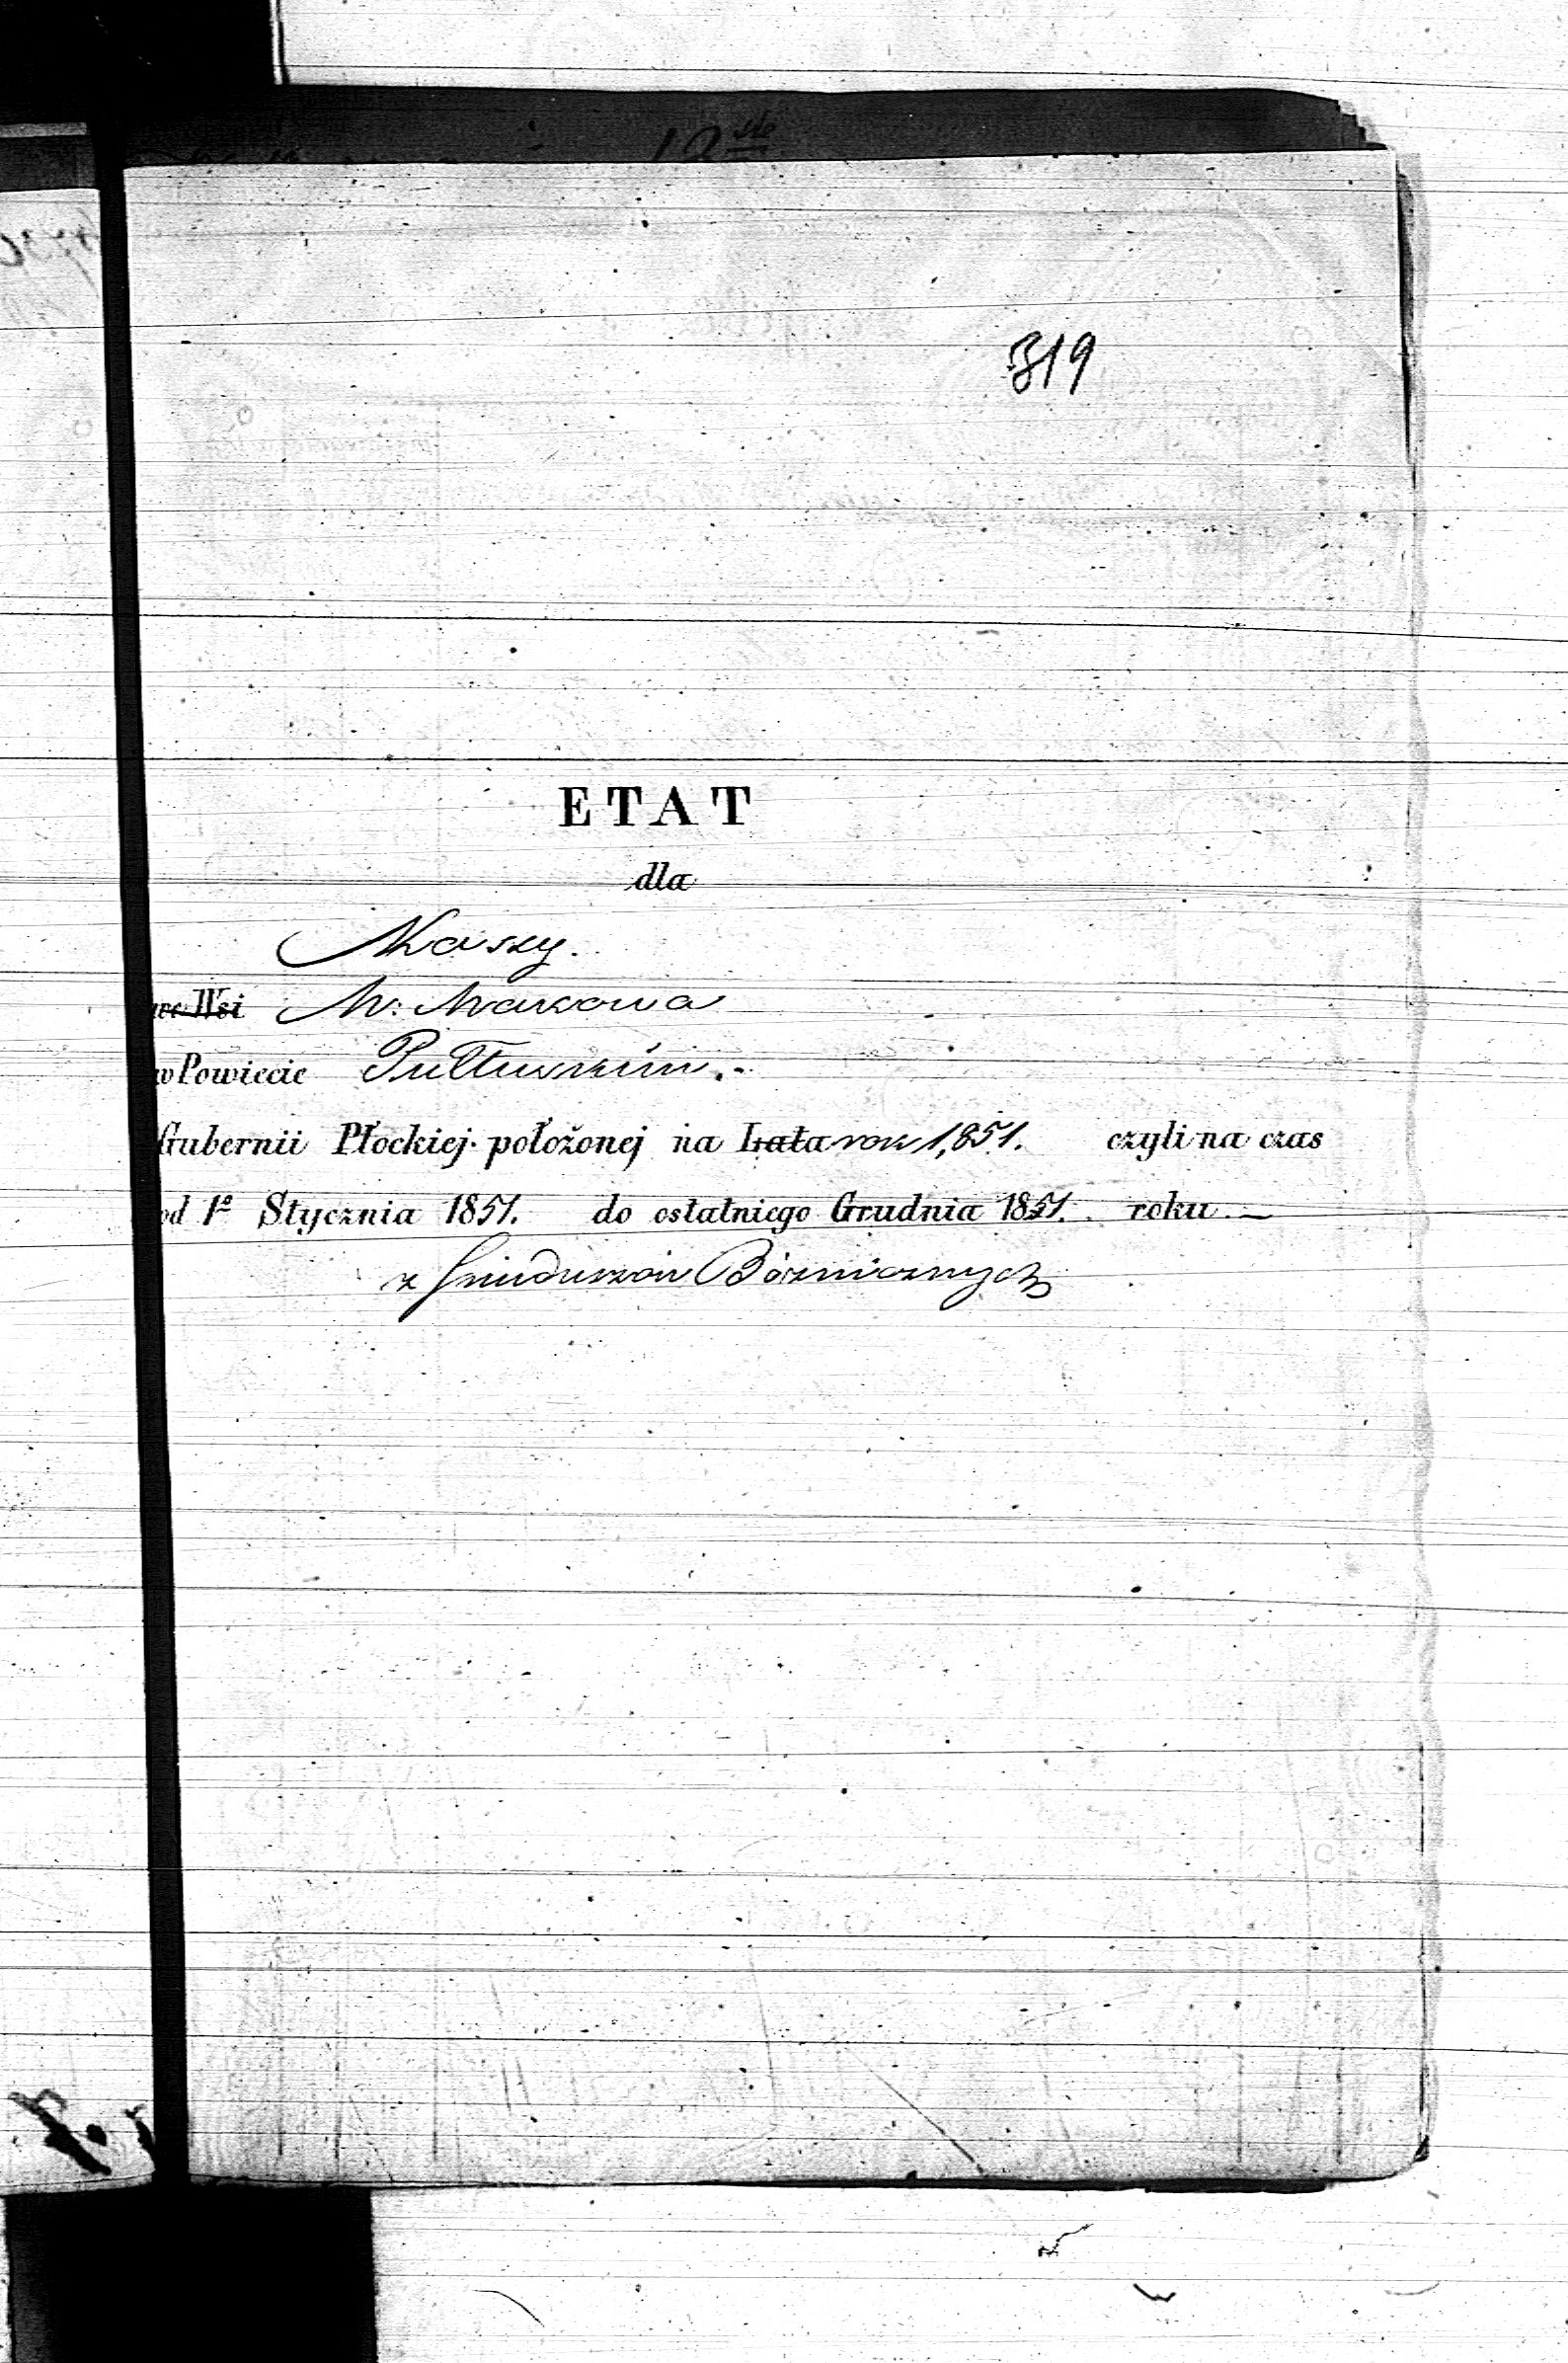 319
ETAT
dla
Kassy.
we Wsi M. Makowa
w Powiecie Pułtuskim.-
Gubernii Płockiej położonej na Lata rok 1,851. czyli na czas
od 1º Stycznia 1851. do ostatniego Grudnia 1851. roku —
z funduszów Bóżnicznych